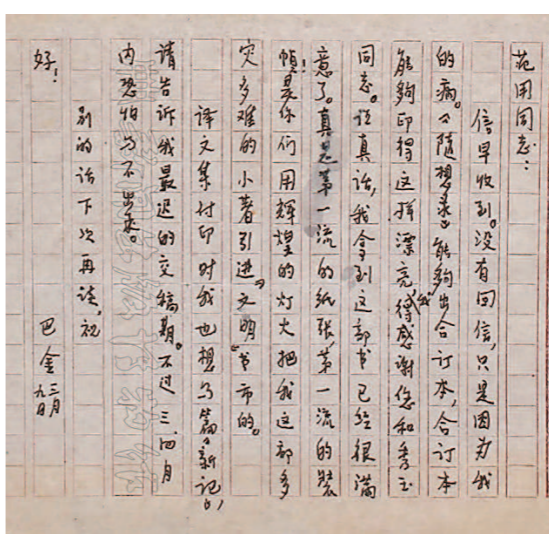 范用同志：
信早收到。没有回信，只是因为我
的病。《随想录》能够出合订本，合订本
能够印得这样漂亮，我得感谢您和秀玉
同志。说真话，我拿到这部书已经很满
意了。真是第一流的纸张，第一流的装
帧！是你们用辉煌的灯火把我这部多
灾多难的小著引进“文明”书市的。
译文集付印时我也想写篇《新记》，
请告诉我最迟的交稿期。不过三、四月
内恐怕写不出来。
别的话下次再谈，祝
好！
巴金
三月
九日